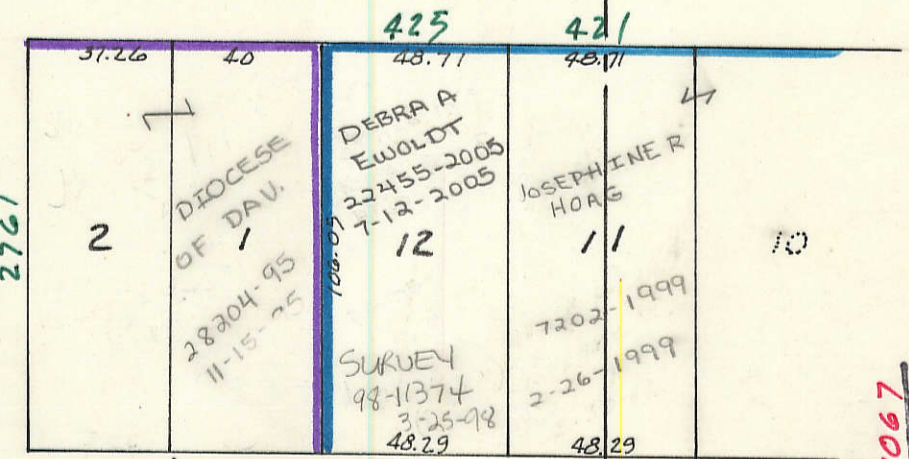 425
421
37.26
40
48.71
48.71
DIOCESE
OF DAV.
28204-95
11-15-95
2
1
2761
106.05
DEBRA A
EWOLDT
22455-2005
7-12-2005
12
SURVEY
98-11374
3-25-98
48.29
JOSEPHINE R
HOAG
11
7202-1999
2-26-1999
48.29
10